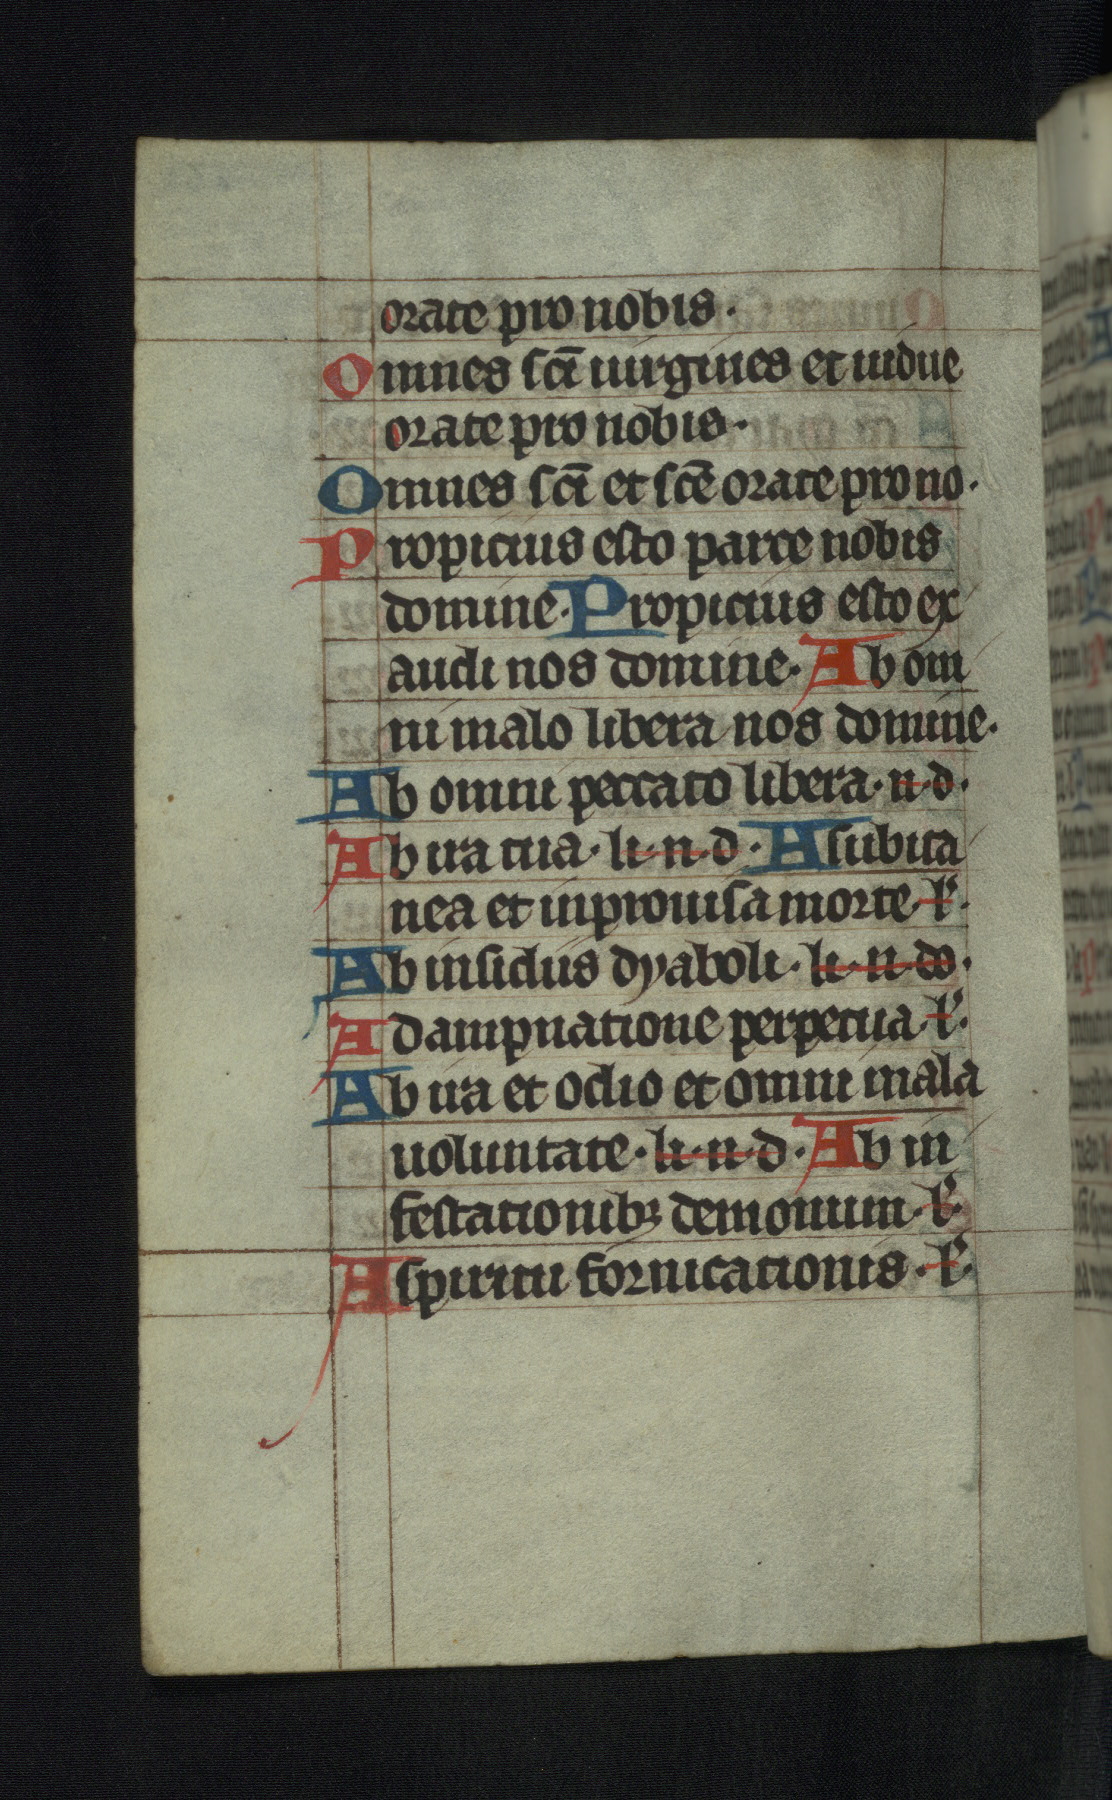 orate pro nobis.
Omnes sce̅ uirgines et uidue
orate pro nobis.
Omnes sci̅ et sce̅ orate pro no.
Propicius esto parce nobis
domine. Propicius esto ex
audi nos domine. Ab om
ni malo libera nos domine.
Ab omni peccato libera. n. d.
Ab ira tua. li. n. d. A subita
nea et inprouisa morte. l'.
Ab insidiis dyaboli. li. n. do.
A dampnatione perpetua. l'.
Ab ira et odio et omni mala
uoluntate. li. n. d. Ab in
festationibꝫ demonium. l'.
A spiritu fornicationis. l'.